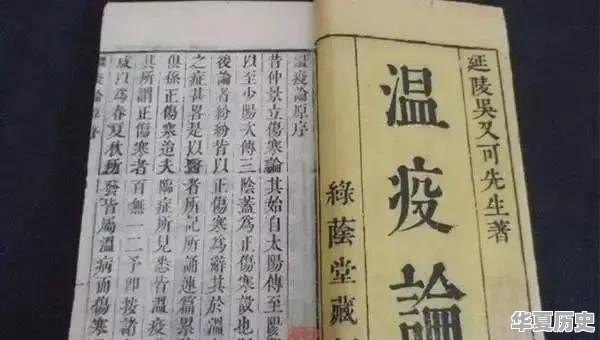 延陵吳又可先生著
温疫論
綠蔭堂藏
溫疫論原序
昔仲景立傷寒論其始自太陽傳至陽
以至少陽次傳三陰蓋為正傷寒設也
後論者紛紛皆以正傷寒為辭其於溫
之症甚畧是以醫者所記所誦連篇累
俱係正傷寒迨夫臨症所見悉皆溫疫
其所謂正傷寒者百無一二予卽按諸
咸以為春夏秋所發皆屬溫病而傷寒
疫論原序
华夏历史